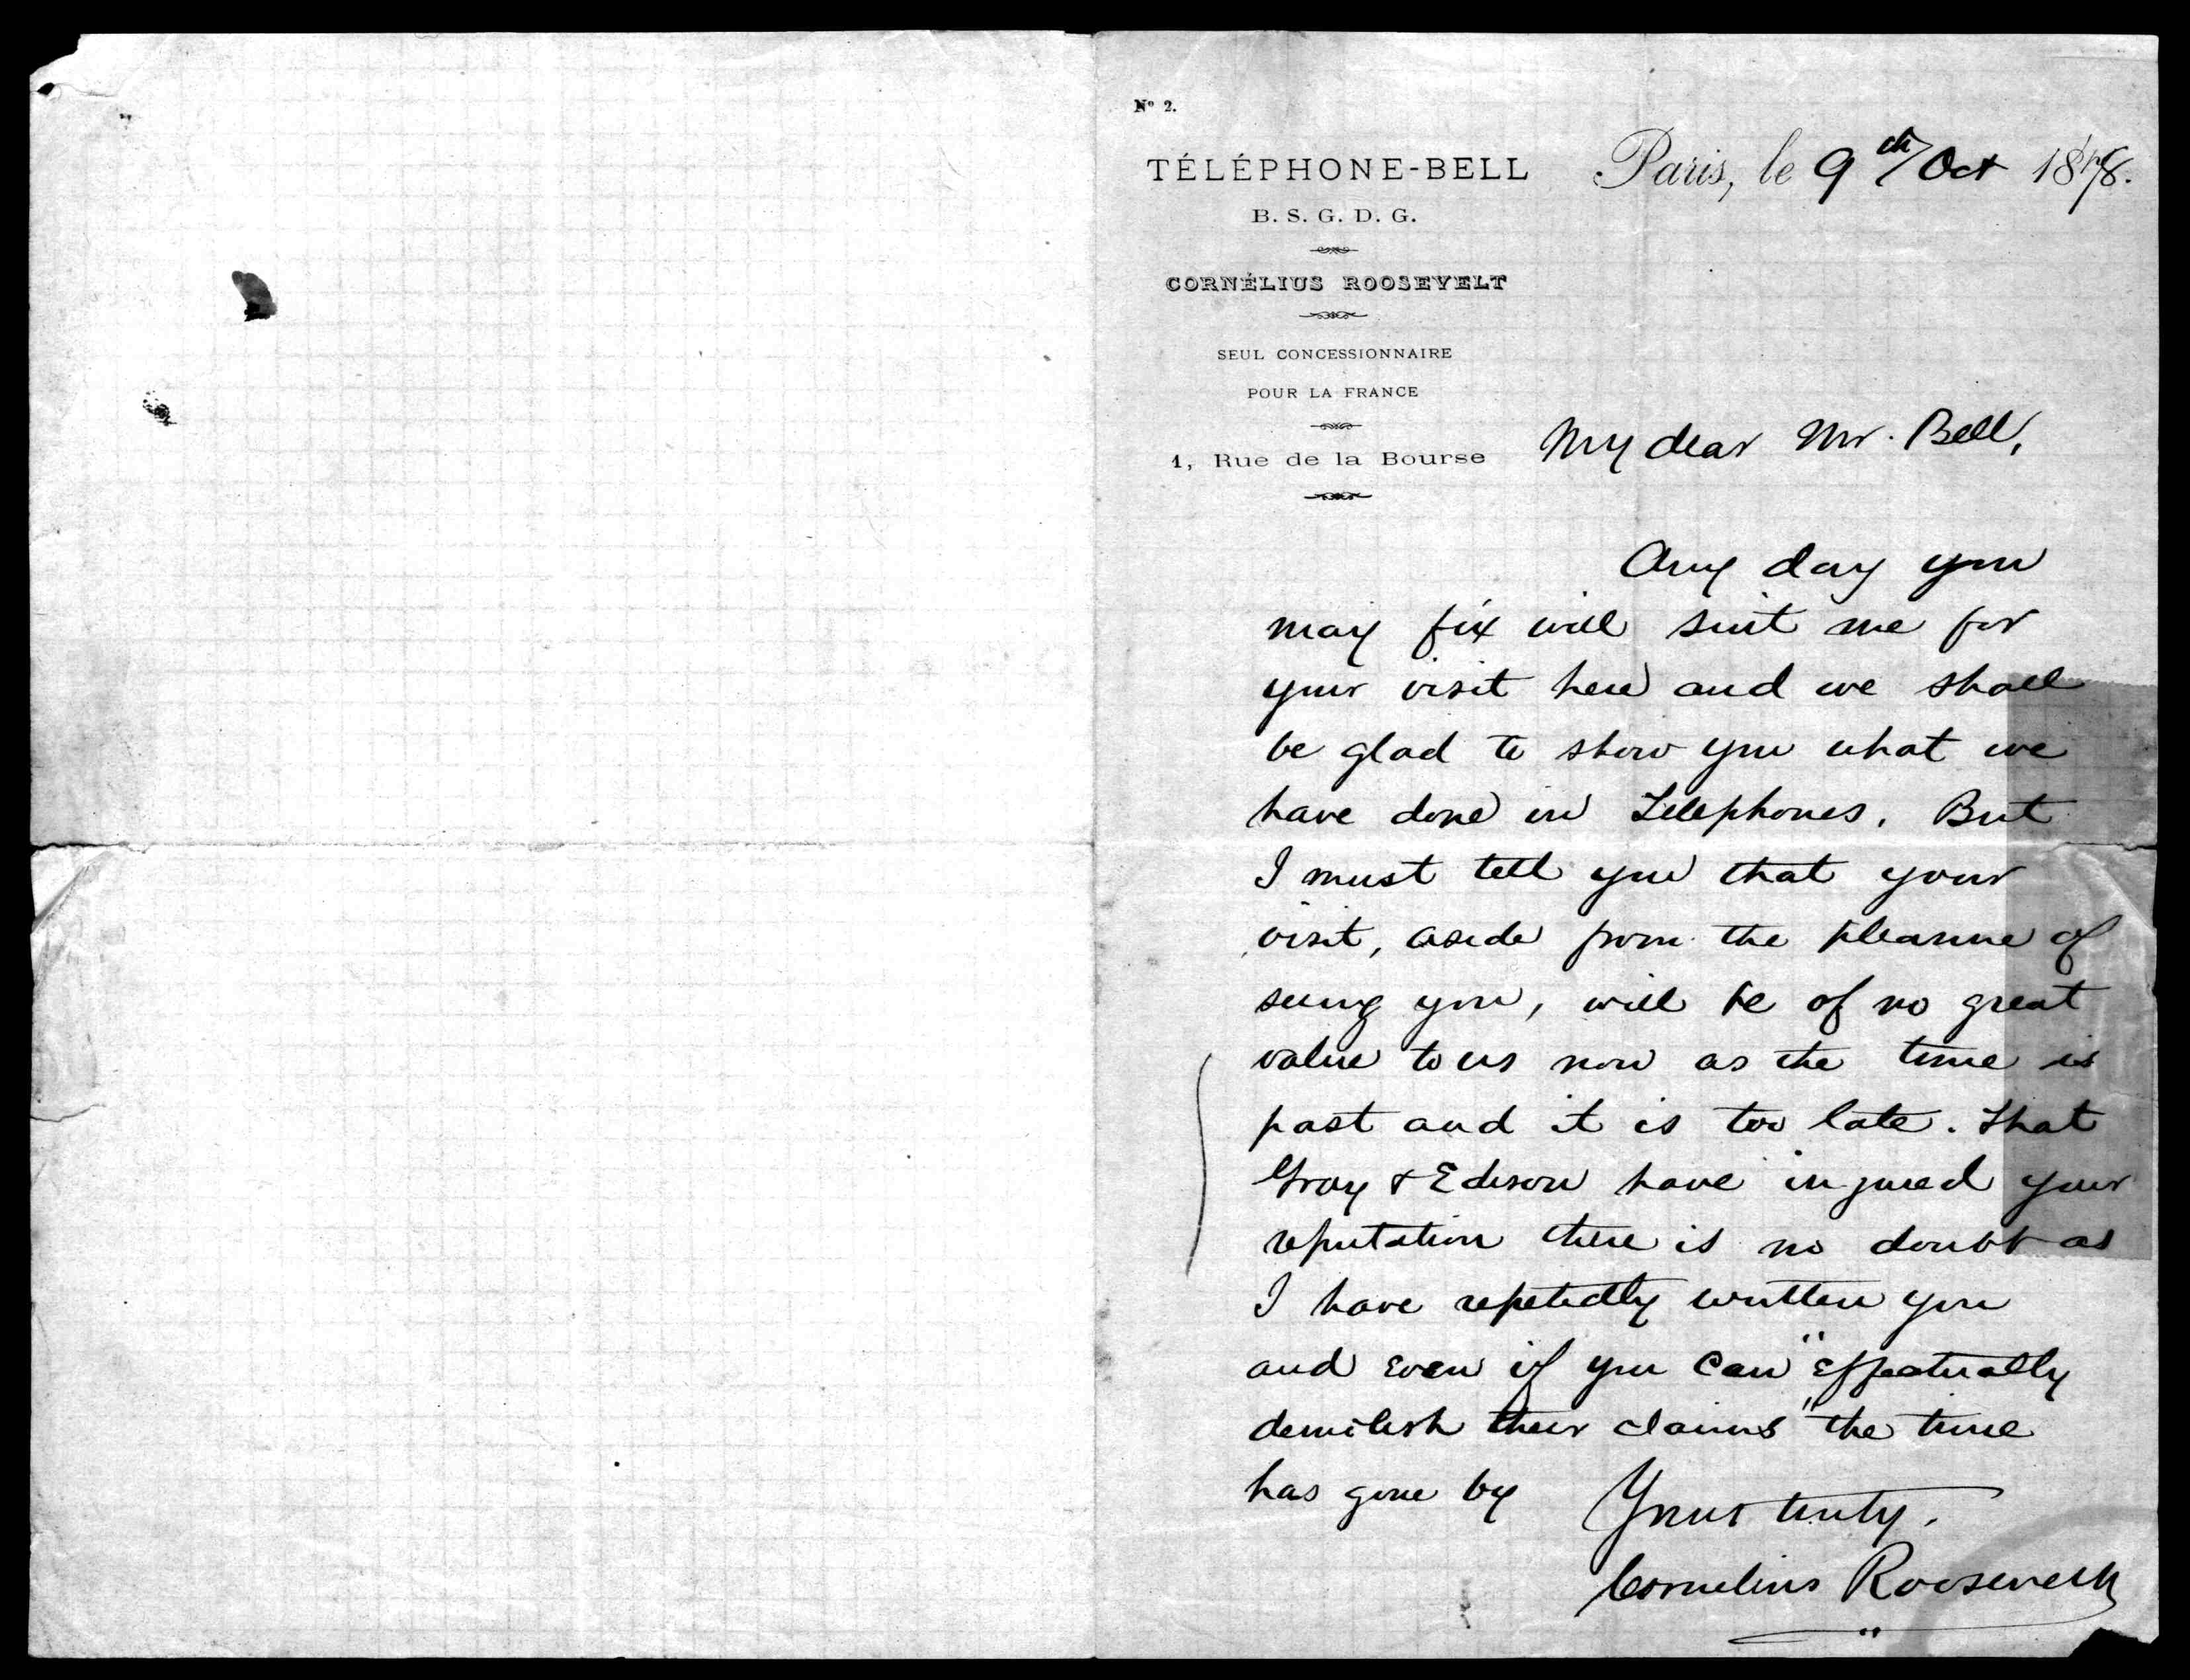 Nº 2.
TÉLÉPHONE-BELL
B. S. G. D. G.
CORNÉLIUS ROOSEVELT
SEUL CONCESSIONNAIRE
POUR LA FRANCE
1, Rue de la Bourse
Paris, le 9th/Oct 1878.
My dear Mr. Bell,
Any day you
may fix will suit me for
your visit here and we shall
be glad to show you what we
have done in Telephones. But
I must tell you that your
visit, aside from the pleasure of
seeing you, will be of no great
value to us now as the time is
past and it is too late. That
Gray & Edison have injured your
reputation there is no doubt as
I have repetedly written you
and even if you can "effectually
demolish their claims" the time
has gone by
Yours truly.
Cornelius Roosevelt